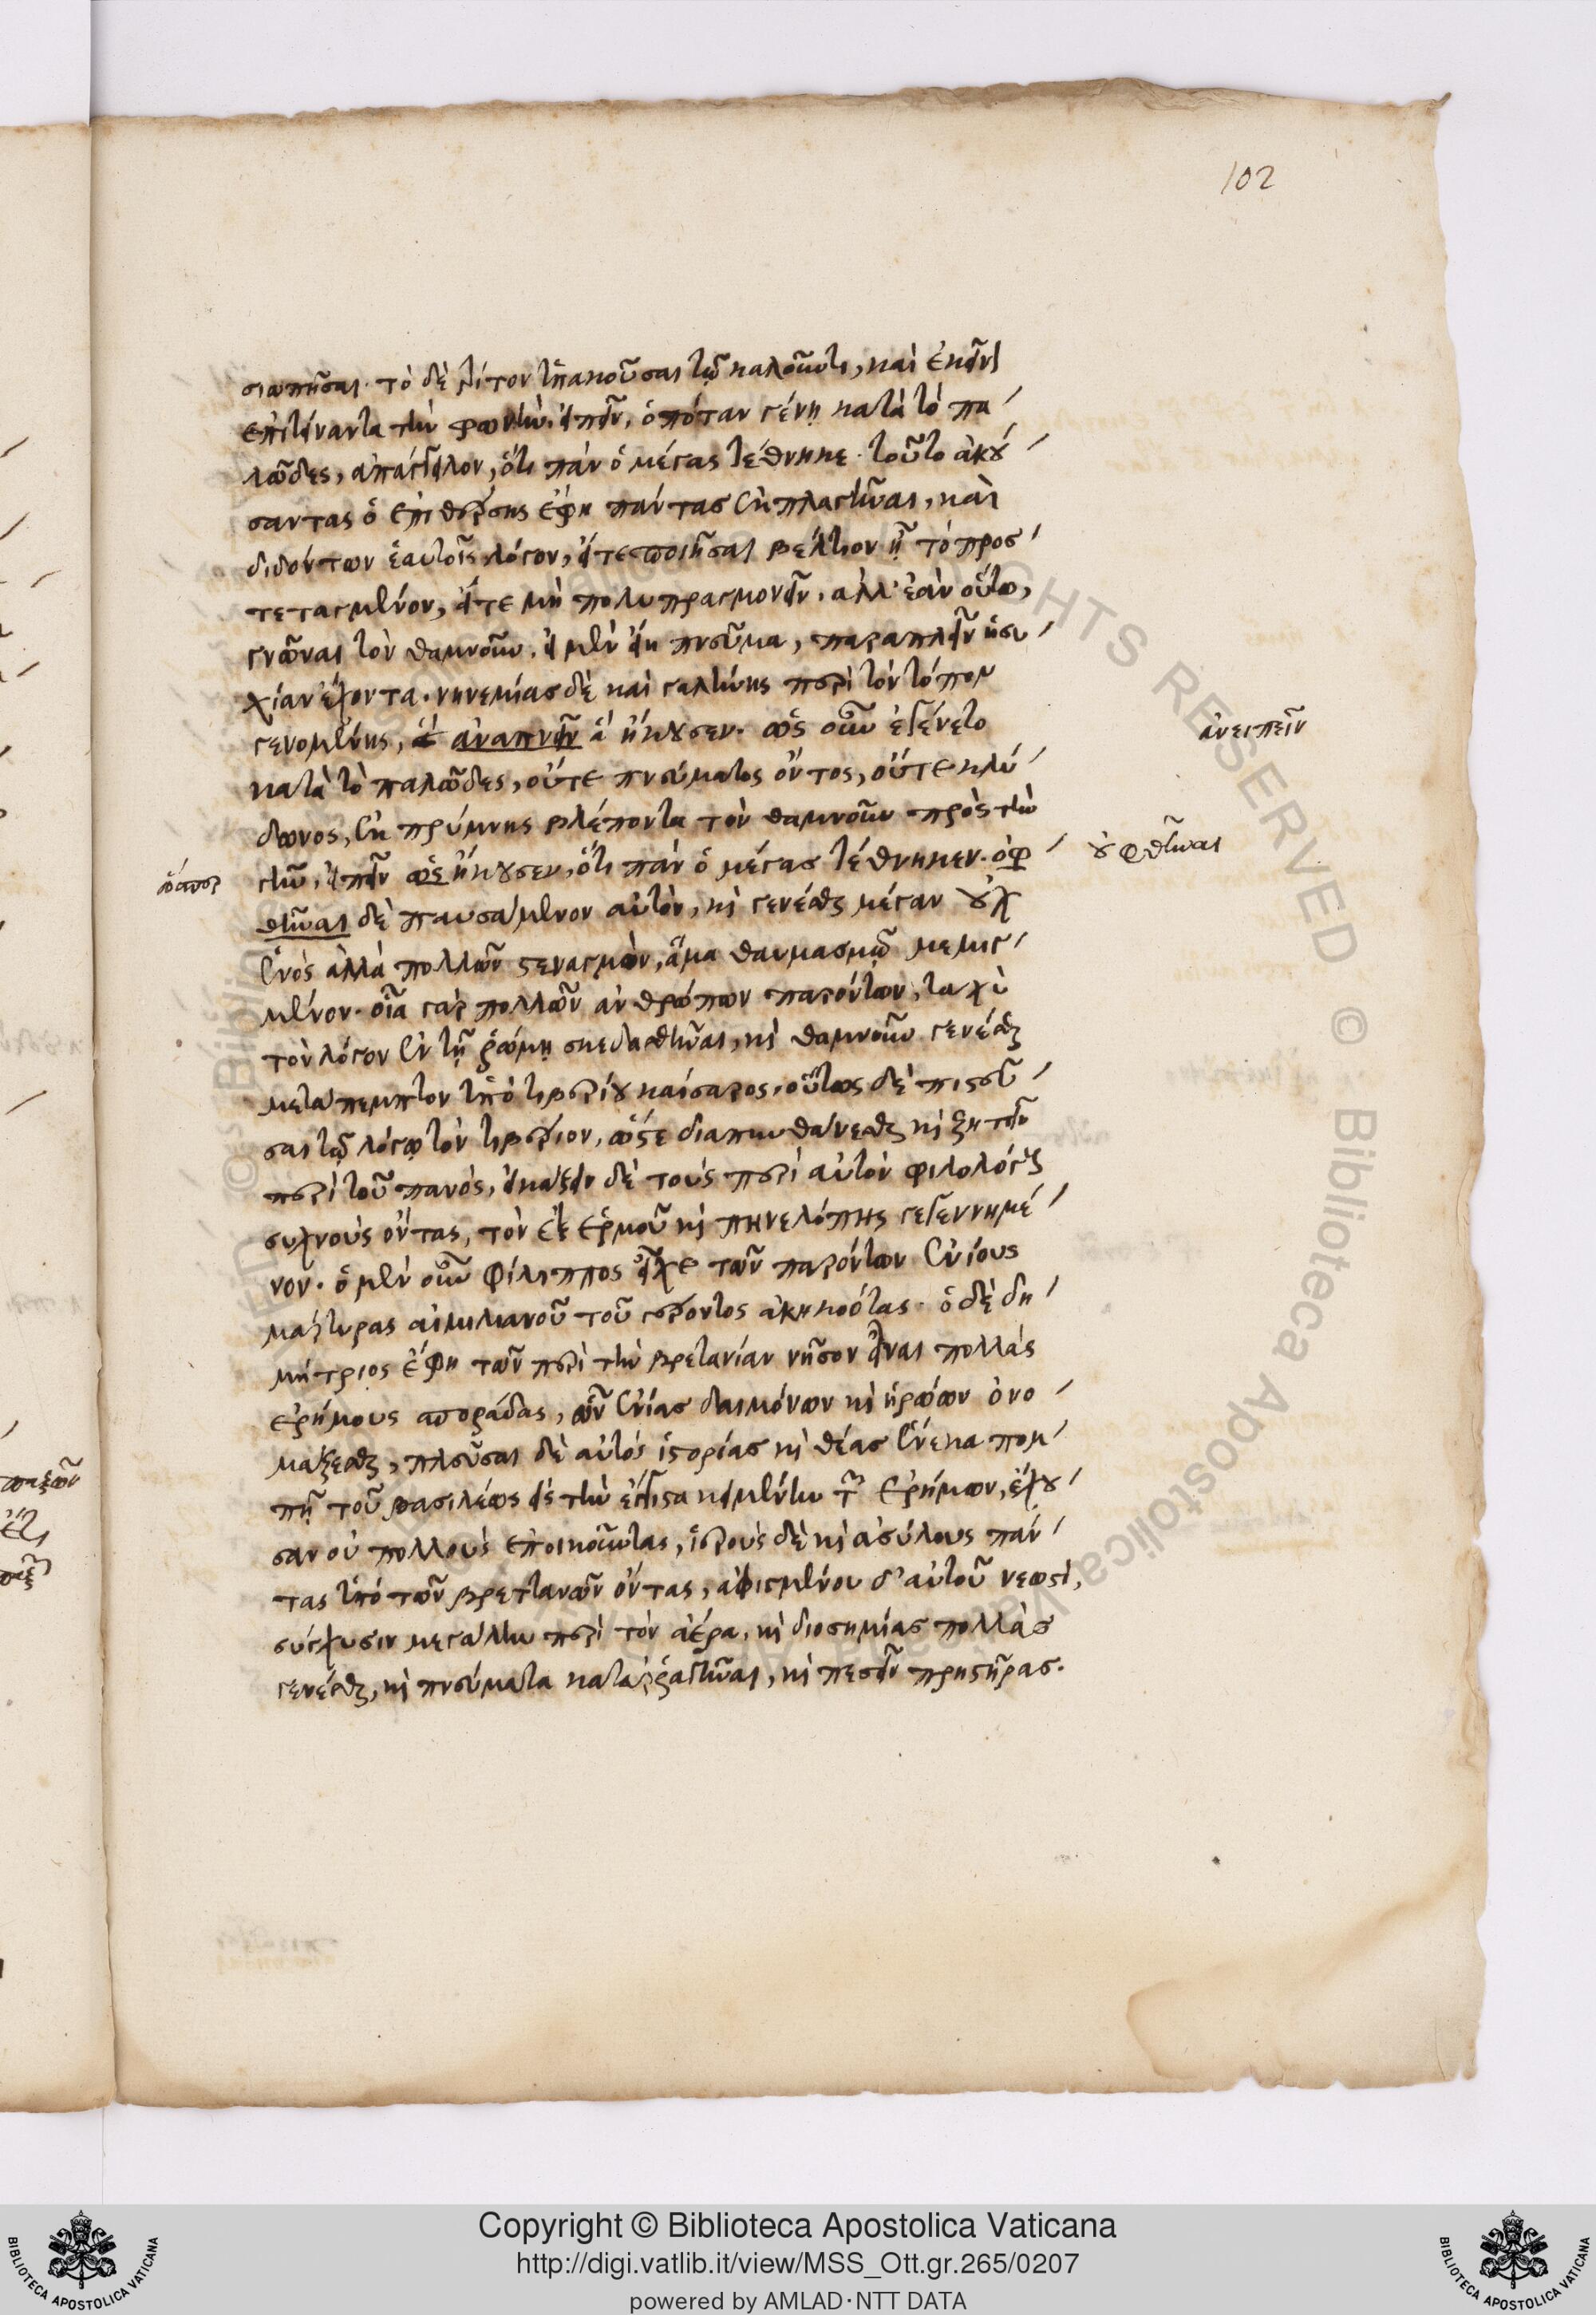 102
σιωπῆσαι· τὸ δὲ τρίτον ὑπακοῦσαι τῷ καλοῦντι, καὶ ἐκεῖνον
ἐπιτείναντα τὴν φωνὴν, εἰπεῖν, ὁπόταν γένῃ κατὰ τὸ πα
λῶδες, ἀπάγγειλον, ὅτι πὰν ὁ μέγας τέθνηκε. τοῦτο ἀκού
σαντας ὁ ἐπιθέρσης ἔφη πάντας ἐκπλαγῆναι, καὶ
διδόντων ἑαυτοῖς λόγον, εἴτε ποιῆσαι βέλτιον ἢ τὸ προσ
τεταγμένον, εἴτε μὴ πολυπραγμονεῖν, ἀλλ' ἐὰν οὕτω,
γνῶναι τὸν θαμνοῦν, εἰ μὲν εἴη πνεῦμα, παραπλεῖν ἡσυ
χίαν ἔχοντα. νηνεμίας δὲ καὶ γαλήνης περὶ τὸν τόπον
γενομένης, ἀναπνεῖν ἃ ἤκουσεν. ὡς οὖν ἐγένετο
ἀνειπεῖν
κατὰ τὸ παλῶδες, οὔτε πνεύματος ὄντος, οὔτε κλύ
δωνος, ἐκ πρύμνης βλέποντα τὸν θαμνοῦν πρὸς τὴν
γῆν, εἰπεῖν ὡς ἤκουσεν, ὅτι πὰν ὁ μέγας τέθνηκεν. ὀφ
ὥσπερ
οὐ φθῆναι
θῆναι δὲ παυσάμενον αὐτὸν, καὶ γενέσθαι μέγαν οὐχ
ἑνὸς ἀλλὰ πολλῶν στεναγμὸν, ἅμα θαυμασμῷ μεμιγ
μένον. οἷα γὰρ πολλῶν ἀνθρώπων παρόντων, ταχὺ
τὸν λόγον ἐν τῇ ῥώμῃ σκεδασθῆναι, καὶ θαμνοῦν γενέσθαι
μετάπεμπτον ὑπὸ τιβερίου καίσαρος. οὕτως δὲ πιστεῦ
σαι τῷ λόγῳ τὸν τιβέριον, ὥστε διαπυνθάνεσθαι καὶ ζητεῖν
περὶ τοῦ πανός, εἰκάζειν δὲ τοὺς περὶ αὐτὸν φιλολόγους
συχνοὺς ὄντας, τὸν ἐξ ἑρμοῦ καὶ πηνελόπης γεγεννημέ
νον. ὁ μὲν οὖν φίλιππος εἶχε τῶν παρόντων ἐνίους
μάρτυρας αἰμιλιανοῦ τοῦ γέροντος ἀκηκοότας. ὁ δὲ δη
μήτριος ἔφη τῶν περὶ τὴν βρετανίαν νῆσον εἶναι πολλὰς
ἐρήμους σποράδας, ὧν ἐνίας δαιμόνων καὶ ἡρώων ὀνο
μάζεσθαι, πλεῦσαι δὲ αὐτὸς ἱστορίας καὶ θέας ἕνεκα πομ
πῇ τοῦ βασιλέως εἰς τὴν ἔγγιστα κειμένην τῶν ἐρήμων, ἔχου
σαν οὐ πολλοὺς ἐποικοῦντας, ἱεροὺς δὲ καὶ ἀσύλους πάν
τας ὑπὸ τῶν βρεττανῶν ὄντας, ἀφιγμένου δ' αὐτοῦ νεωστὶ,
σύγχυσιν μεγάλην περὶ τὸν ἀέρα, καὶ διοσημίας πολλὰς
γενέσθαι, καὶ πνεύματα καταρραγῆναι, καὶ πεσεῖν πρηστῆρας.
Copyright © Biblioteca Apostolica Vaticana
http://digi.vatlib.it/view/MSS_Ott.gr.265/0207
powered by AMLAD·NTT DATA